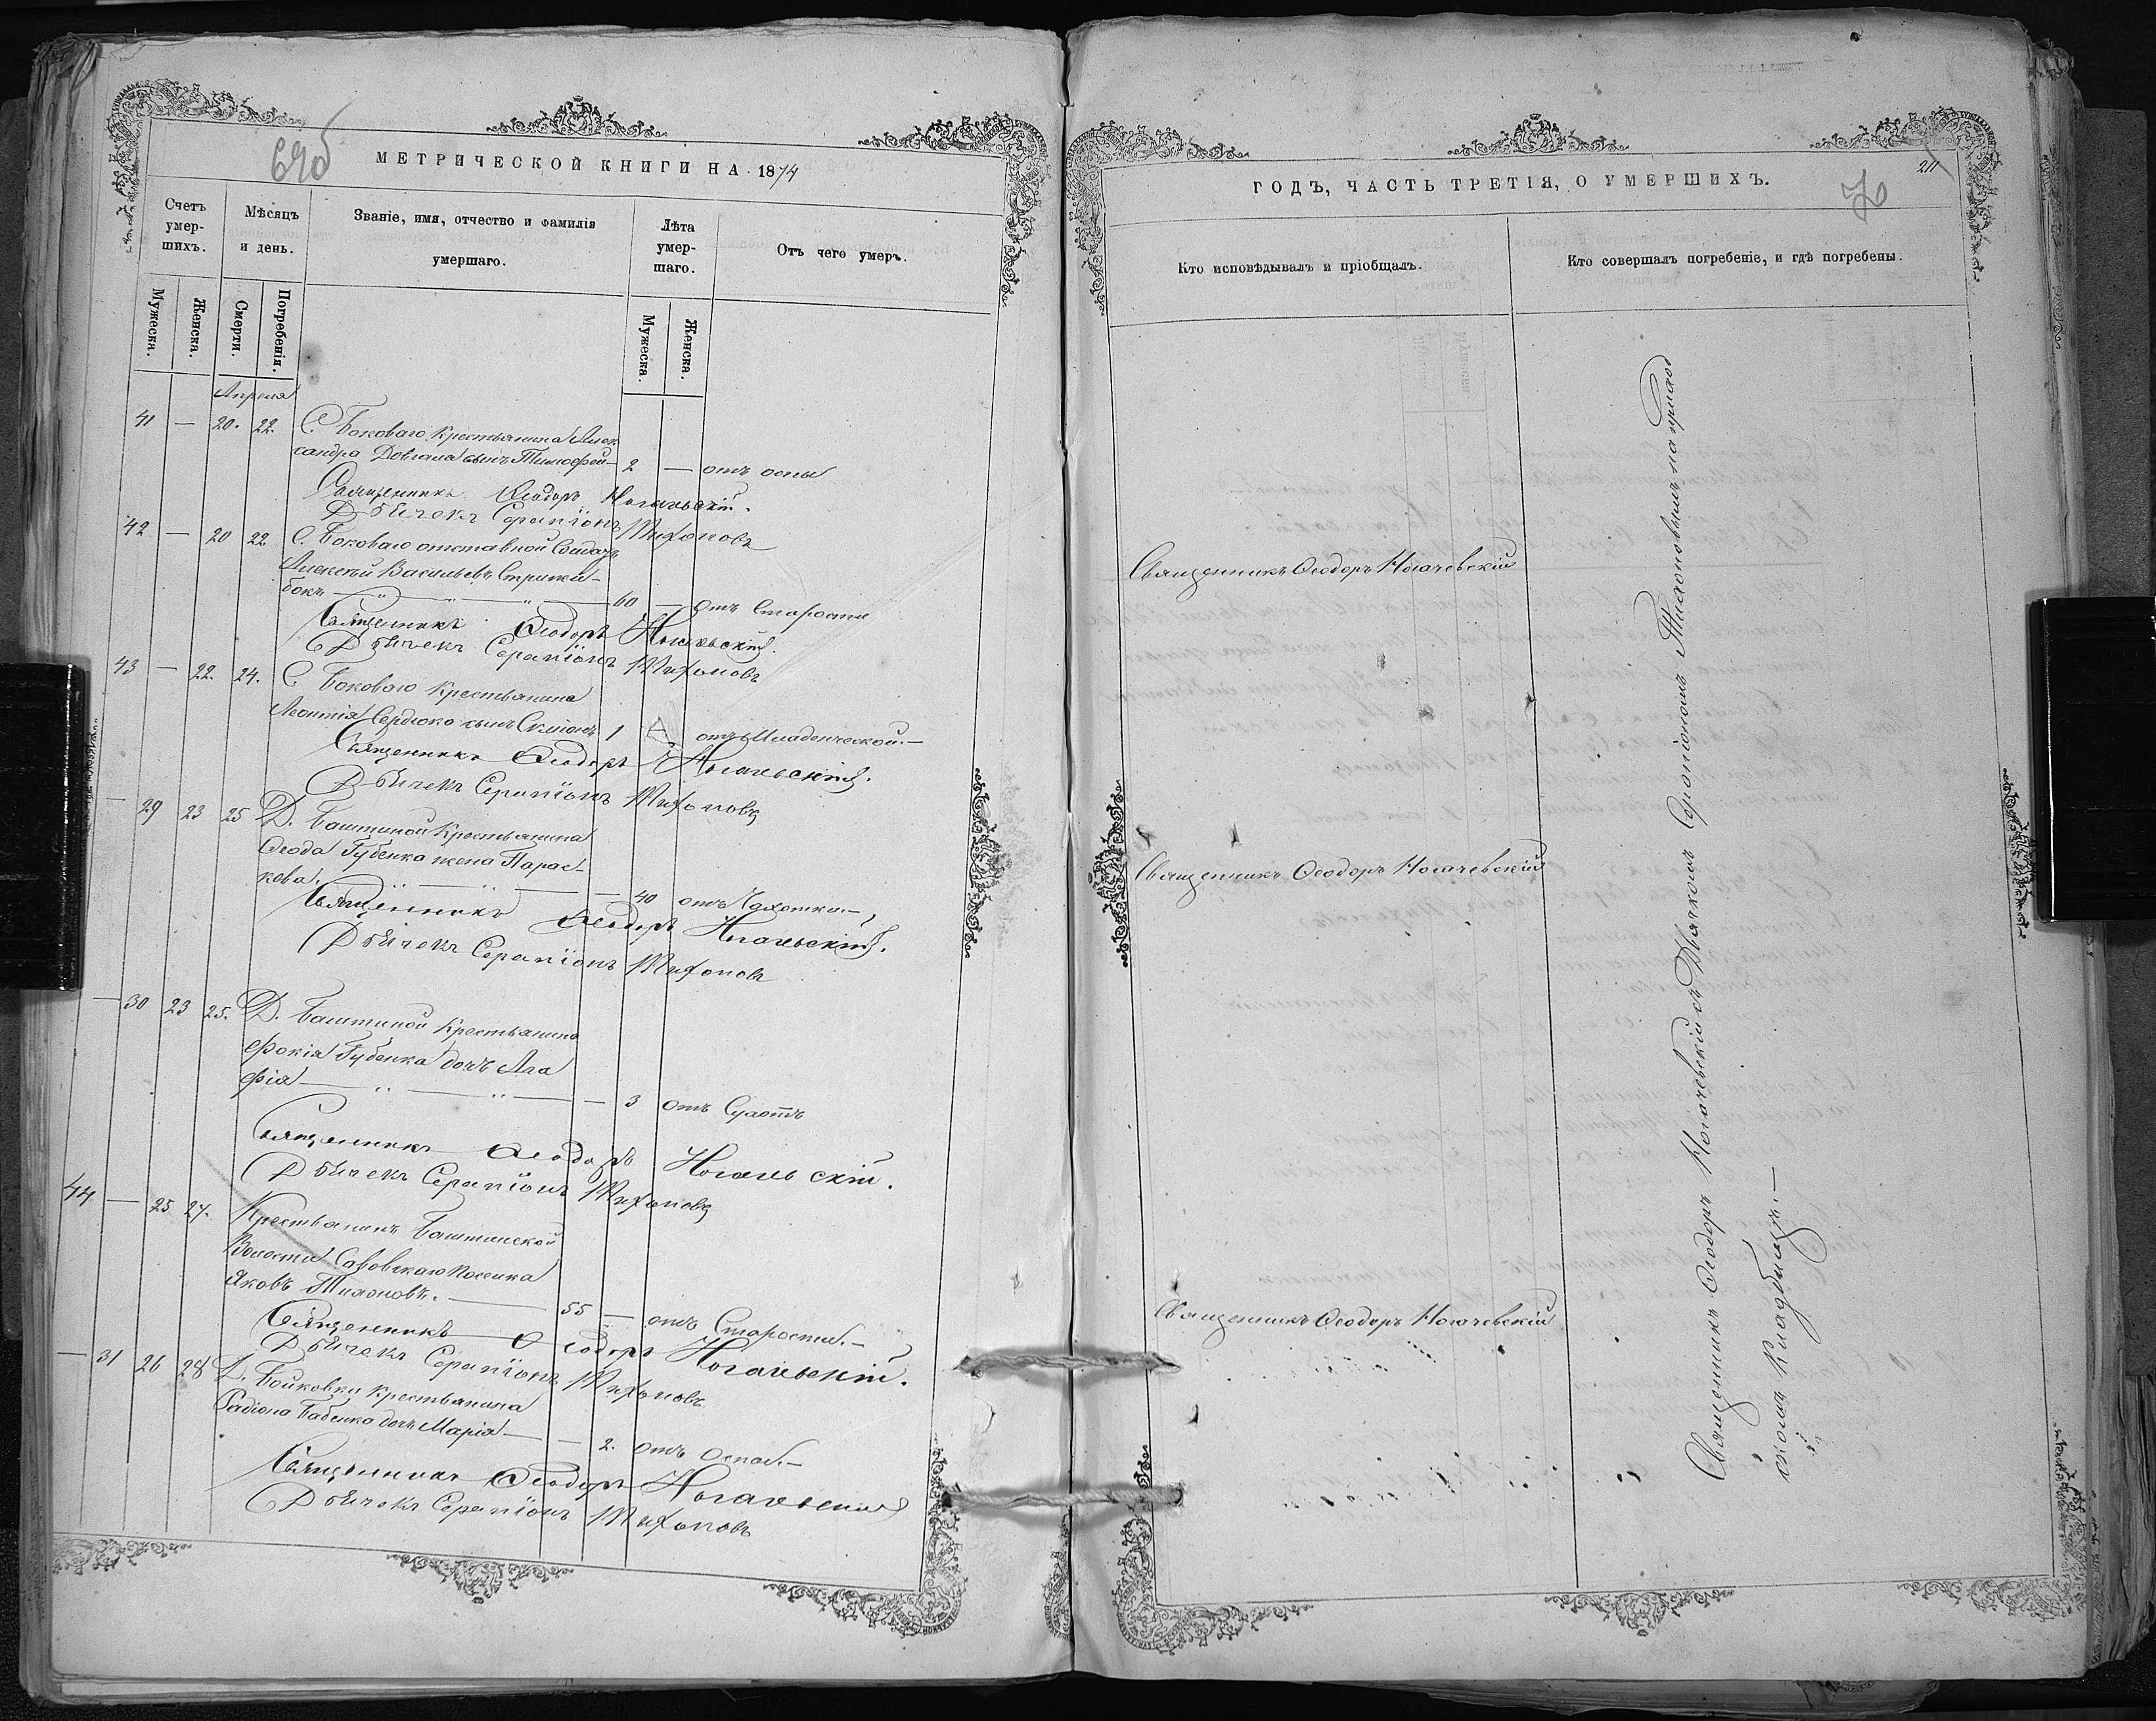 69об
МЕТРИЧЕСКОЙ КНИГИ НА 1874
Счетъ умер-шихъ.
Мѣсяцъ и день.
Званіе, имя, отчество и фамилія умершаго.
Лѣта умер-шаго.
Отъ чего умеръ.
Мужеска.
Женска.
Смерти.
Погребенія.
Мужеска.
Женска.
Апреля
41 — 20. 22. С. Боковаго Крестьянина Алек
сандра Довгаля сынъ Тимофей — 2 — отъ оспы
Священникъ Ѳеодоръ Ногачевскій.
Дьячекъ Серапіонъ Тихоновъ
42 — 20 22 С. Боковаго отставной Солдатъ
Алексѣй Васильевъ Стрижи-
бокъ — 60 — отъ Старости
Священникъ Ѳеодоръ Ногачевскій.
Дьячекъ Серапіонъ Тихоновъ
43 — 22. 24. С. Боковаго Крестьянина
Леонтія Сердюка сынъ 1 отъ Младенческой. —
Священникъ Ѳеодоръ Ногачевскій.
Дьячекъ Серапіонъ Тихоновъ
— 29 23 25 Д. Баштиной Крестьянина
Ѳеода Губенка жена Парас-
кева. — 40 отъ Чахотки. —
Священникъ Ѳеодоръ Ногачевскій.
Дьячекъ Серапіонъ Тихоновъ
— 30 23 25. Д. Баштиной Крестьянина
Фокія Губенка дочь Ага
фія — 3 отъ Сухотъ
Священникъ Ѳеодоръ Ногачевскій.
Дьячекъ Серапіонъ Тихоновъ
44 — 25 27. Крестьянинъ Баштинской
Волости Савовскаго Поселка
Яковъ Тихоновъ. — 55 — отъ Старости. —
Священникъ Ѳеодоръ Ногачевскій.
Дьячекъ Серапіонъ Тихоновъ
— 31 26 28 Д. Бойковки Крестьянина
Радіона Бабенка дочь Марія — — 2. отъ Оспы. —
Священникъ Ѳеодоръ Ногачевскій
Дьячекъ Серапіонъ Тихоновъ
ГОДЪ, ЧАСТЬ ТРЕТІЯ, О УМЕРШИХЪ.
70
211
Кто исповѣдывалъ и пріобщалъ.
Кто совершалъ погребеніе, и гдѣ погребены.
Священникъ Ѳеодоръ Ногачевскій
Священникъ Ѳеодоръ Ногачевскій
Священникъ Ѳеодоръ Ногачевскій
Священникъ Ѳеодоръ Ногачевскій съ Дьячкомъ Серапіономъ Тихоновымъ на приход
скомъ Кладбищѣ. —